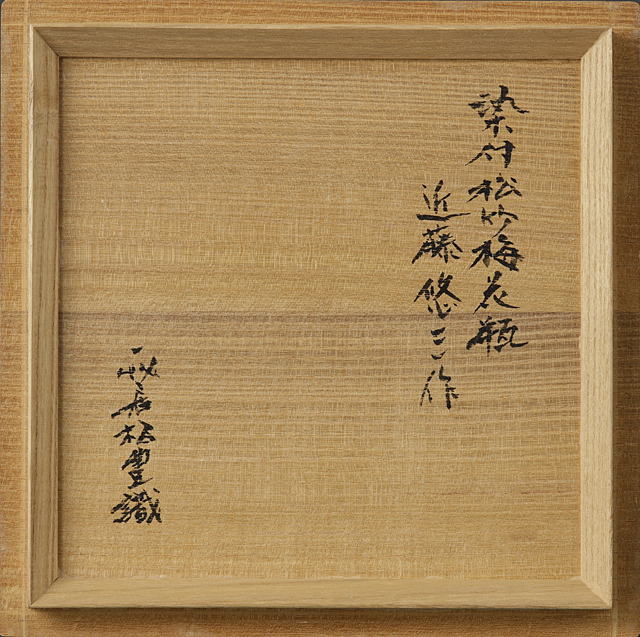 染付松竹梅花瓶
近藤悠三作
豊識